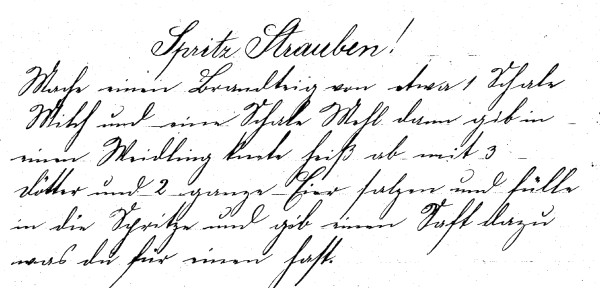 Spritz Strauben!
Mache einen Brandteig von etwa 1 Schale
Milch und eine Schale Mehl dann gib in
einen Weidling heiß ab mit 3
Dötter und 2 ganze Eier salzen und fülle
in die Spritze und gib einen Saft dazu
was du für einen hast.